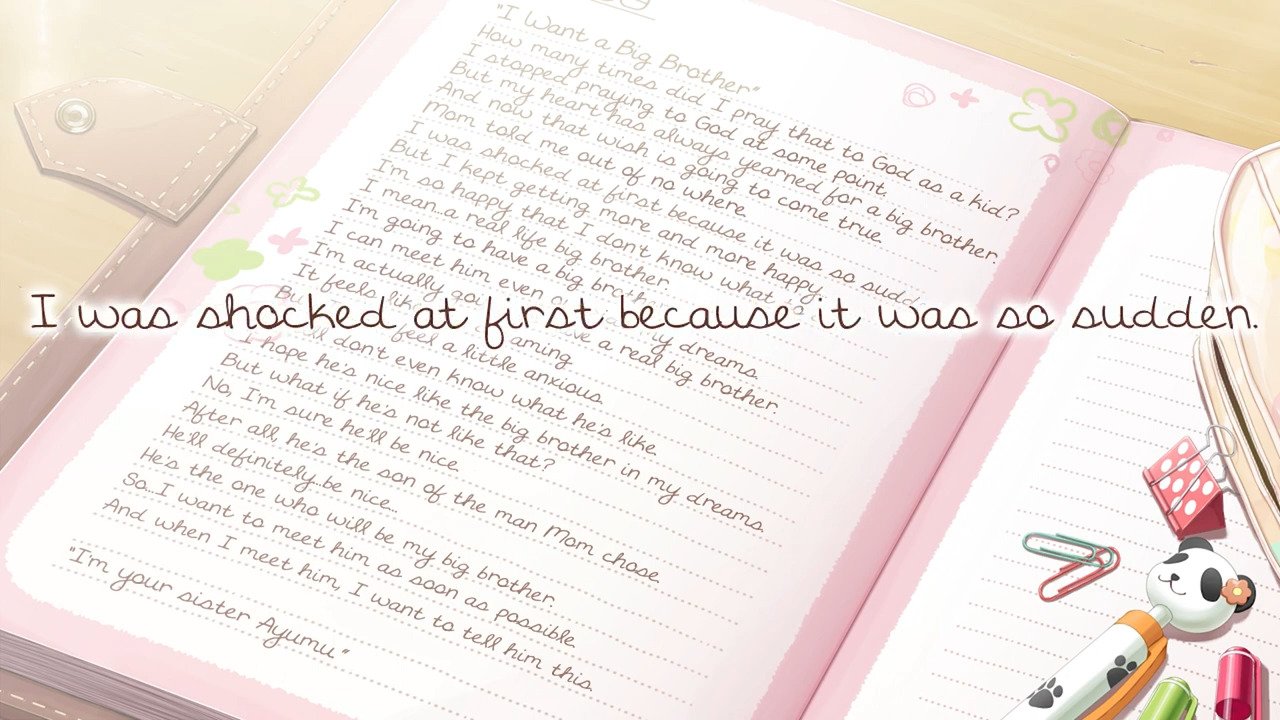 "I Want a Big Brother"
How many times did I pray that to God as a kid?
I stopped praying to God at some point.
But my heart has always yearned for a big brother.
And now that wish is going to come true.
Mom told me out of no where.
I was shocked at first because it was so
But I kept getting more and more happy.
I'm so happy that I don't know what
I mean...a real life big brother.
I'm going to have a big
I can meet him even my dreams.
I'm actually a real big brother.
It feels
feel a little anxious.
don't even know what he's like.
I hope he's nice like the big brother in my dreams.
But what if he's not like that?
No, I'm sure he'll be nice.
After all, he's the son of the man Mom chose.
He'll definitely...be nice...
He's the one who will be my big brother.
So...I want to meet him as soon as possible.
And when I meet him, I want to tell him this.
"I'm your sister Ayumu."
I was shocked at first because it was so sudden.